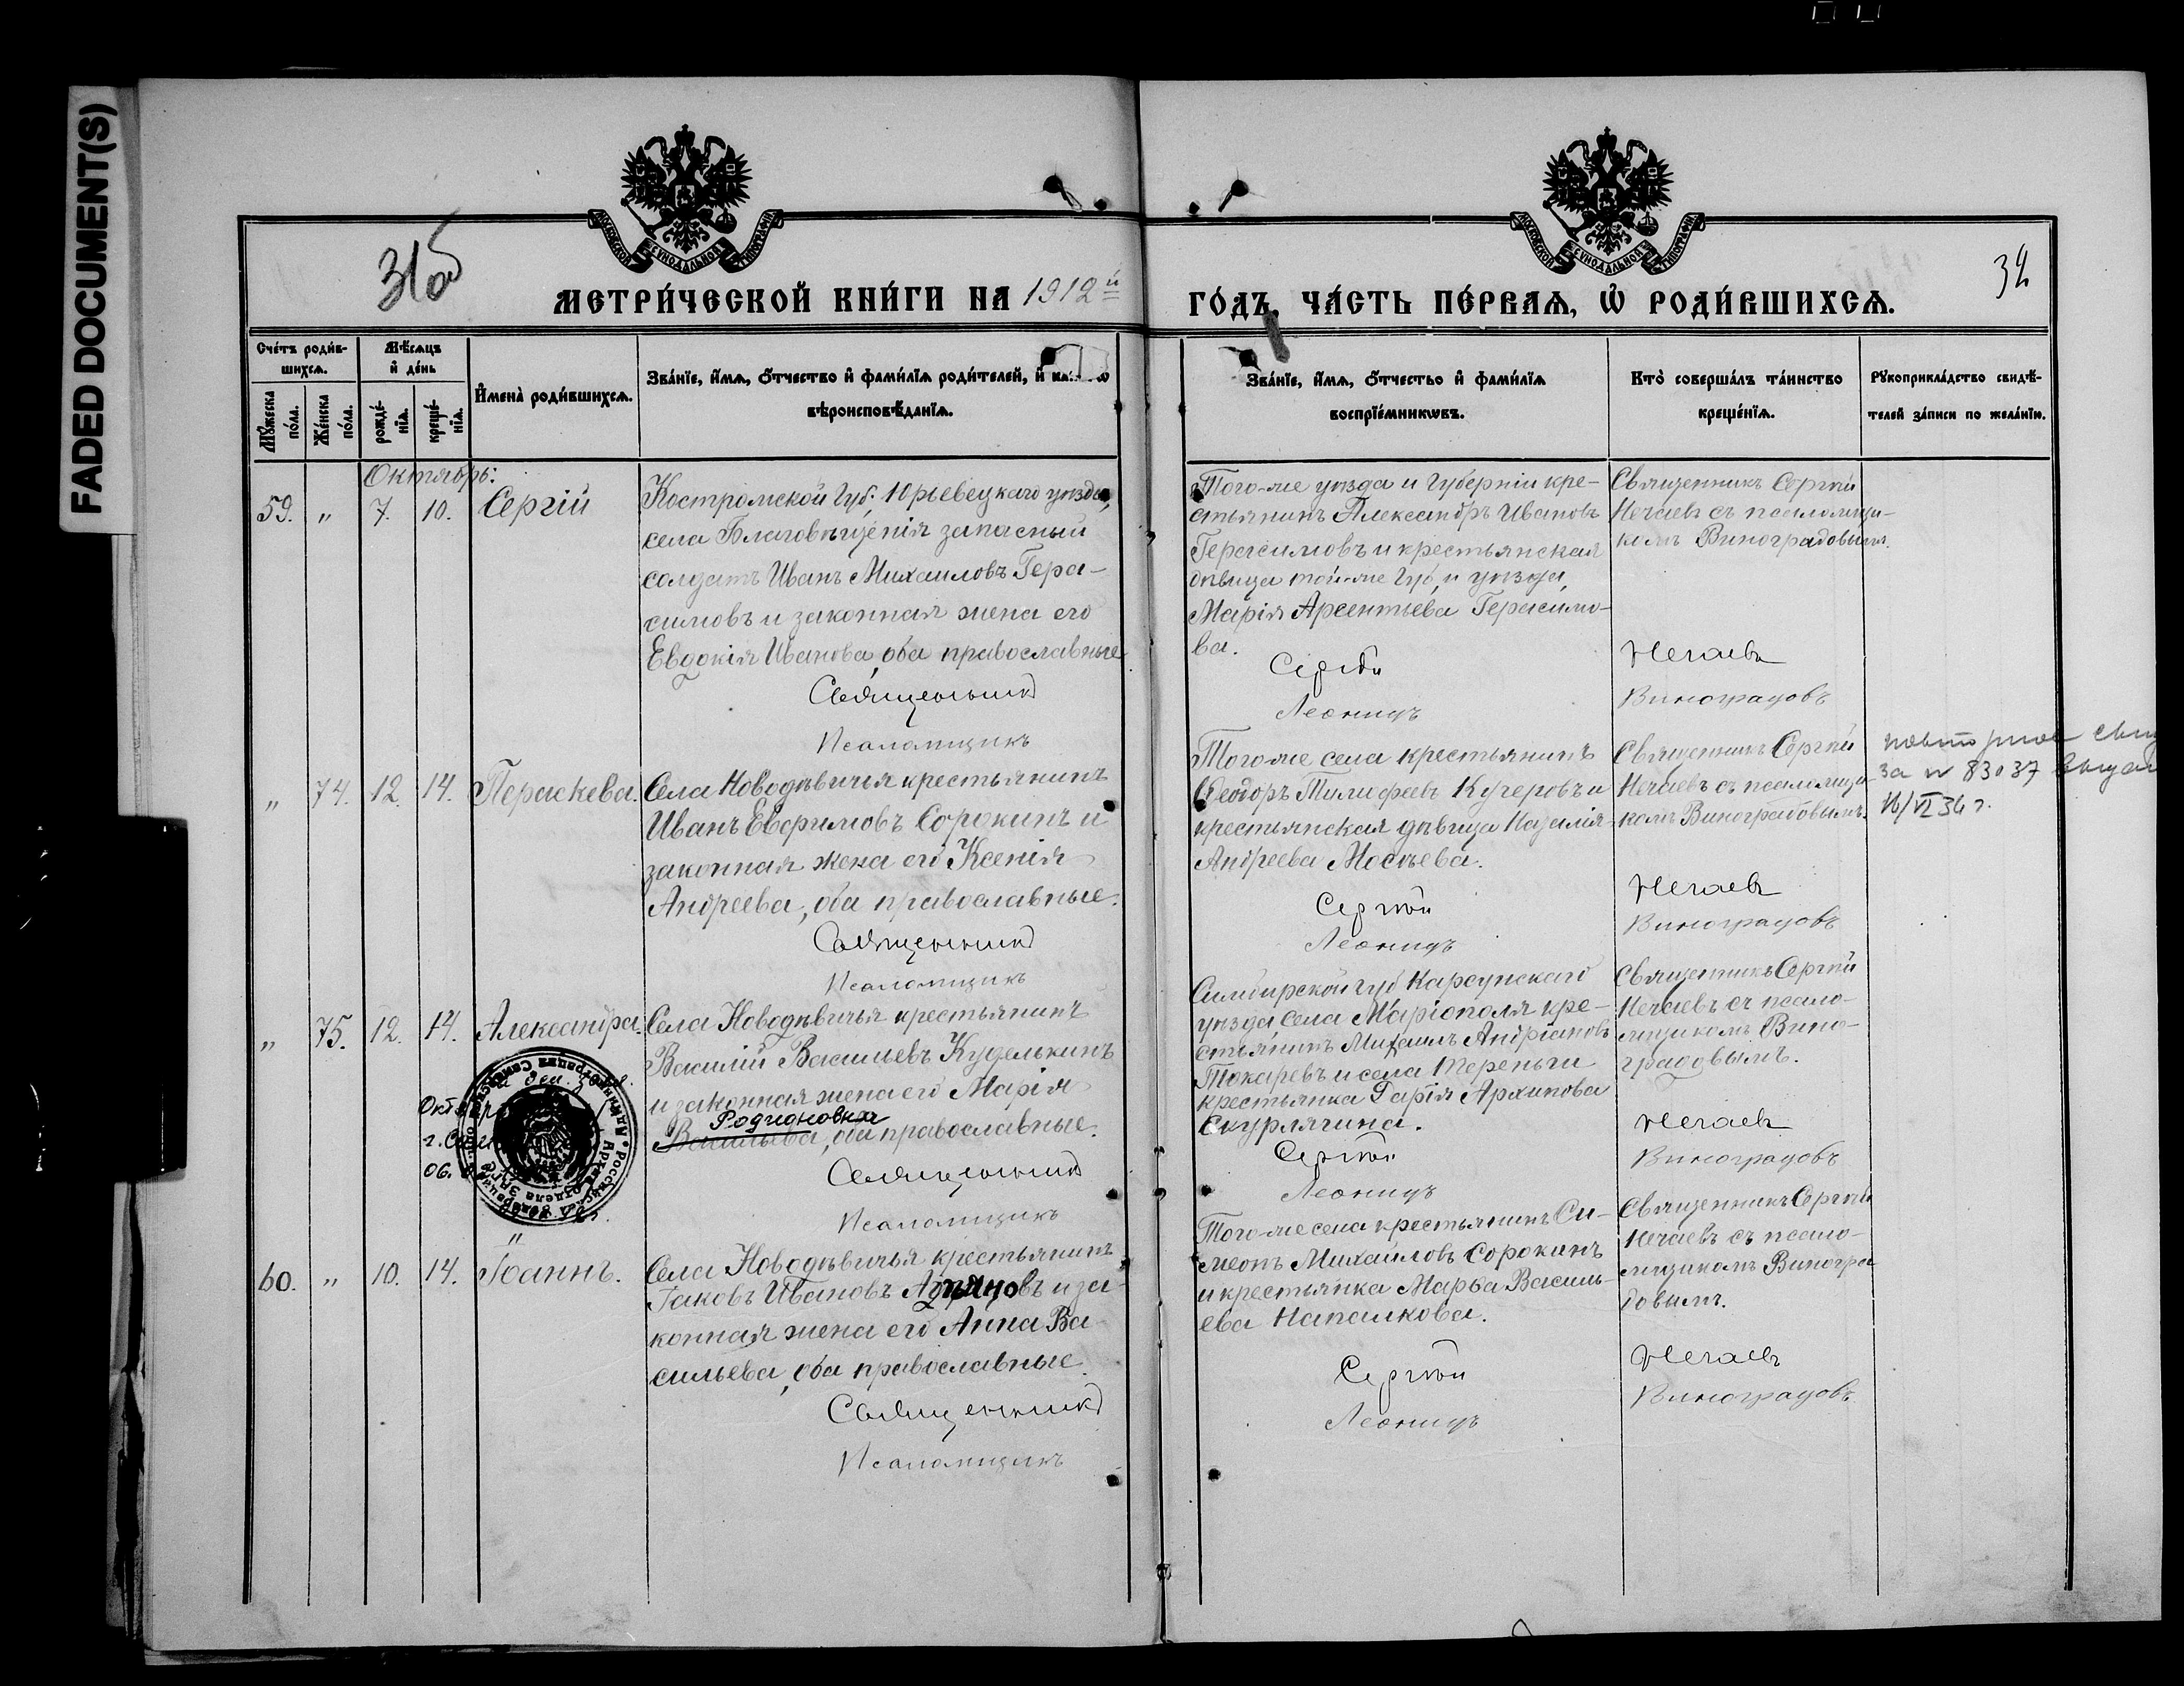 FADED DOCUMENT(S)
31об
МЕТРИ́ЧЕСКОЙ КНИ́ГИ НА 1912й
ГО́ДЪ, ЧА́СТЬ ПЕ́РВАѦ, Ѡ҆ РОДИ́ВШИХСѦ.
32
Сче́тъ роди́в-
шихсѧ.
Мѣ́сѧцъ
и҆ де́нь
И҆мена̀ роди́вшихсѧ.
Зва́нїе, и҆́мѧ, ѻ҆́тчество и҆ фами́лїѧ роди́телей, и҆
вѣроисповѣ́данїѧ.
Мꙋ́жеска
по́ла.
Же́нска
по́ла.
рожде́-
нїѧ.
креще́-
нїѧ.
Зва́нїе, и҆́мѧ, ѻ҆́тчество и҆ фами́лїѧ
воспрїе́мникѡвъ.
Кто̀ соверша́лъ та́инство
креще́нїѧ.
Рꙋкоприкла́дство свидѣ́-
телей за́писи по жела́нїю.
Октябрь:
59. " 7. 10. Сергій
Костромской Губ. Юрьевецкаго уѣзда,
села Благовѣщенія запасный
солдатъ Иванъ Михаиловъ Гера-
симовъ и законная жена его
Евдокія Иванова, оба православные
Священникъ
Псаломщикъ
Того-же уѣзда и Губерніи кре-
стьянинъ Александръ Ивановъ
Герасимовъ и крестьянская
дѣвица той-же Губ. и уѣзда,
Марія Арсентьева Герасимо-
ва.
Сергій
Леонидъ
Священникъ Сергій
Нечаевъ съ псаломщи-
комъ Виноградовымъ.
Нечаевъ
Виноградовъ
" 74. 12. 14. Параскева.
Села Новодѣвичья крестьянинъ
Иванъ Евфимовъ Сорокинъ и
законная жена его Ксенія
Андреева, оба православные.
Священникъ
Псаломщикъ
Того-же села крестьянинъ
Ѳеодоръ Тимофеевъ Кучеровъ и
крестьянская дѣвица
Андреева
Сергій
Леонидъ
Священникъ Сергій
Нечаевъ съ псаломщи-
комъ Виноградовымъ.
Нечаевъ
Виноградовъ
повторное
за № 83037
16/VI 36 г.
" 75. 12. 14. Александра.
Села Новодѣвичья крестьянинъ
Василій Васильевъ Куделькинъ
и законная жена его Марія
Родионовна
Васильева, оба православные.
Священникъ
Псаломщикъ
Симбирской губ Карсунскаго
уѣзда села Маріополя кре-
стьянинъ Михаилъ Андріановъ
Токаревъ и села Тереньги
крестьянка Дарія Архипова
Скурлягина.
Сергій
Леонидъ
Священникъ Сергій
Нечаевъ съ псало-
мщикомъ Вино-
градовымъ.
Нечаевъ
Виноградовъ
60. " 10. 14. Іоаннъ.
Села Новодѣвичья крестьянинъ
Іаковъ Ивановъ и за-
конная жена его Анна Ва-
сильева, оба православные.
Священникъ
Псаломщикъ
Того-же села крестьянинъ Си-
меонъ Михаиловъ Сорокинъ
и крестьянка Марѳа Василь-
ева Напалкова.
Сергій
Леонидъ
Священникъ Сергій
Нечаевъ съ псало-
мщикомъ Виногра-
довымъ.
Нечаевъ
Виноградовъ